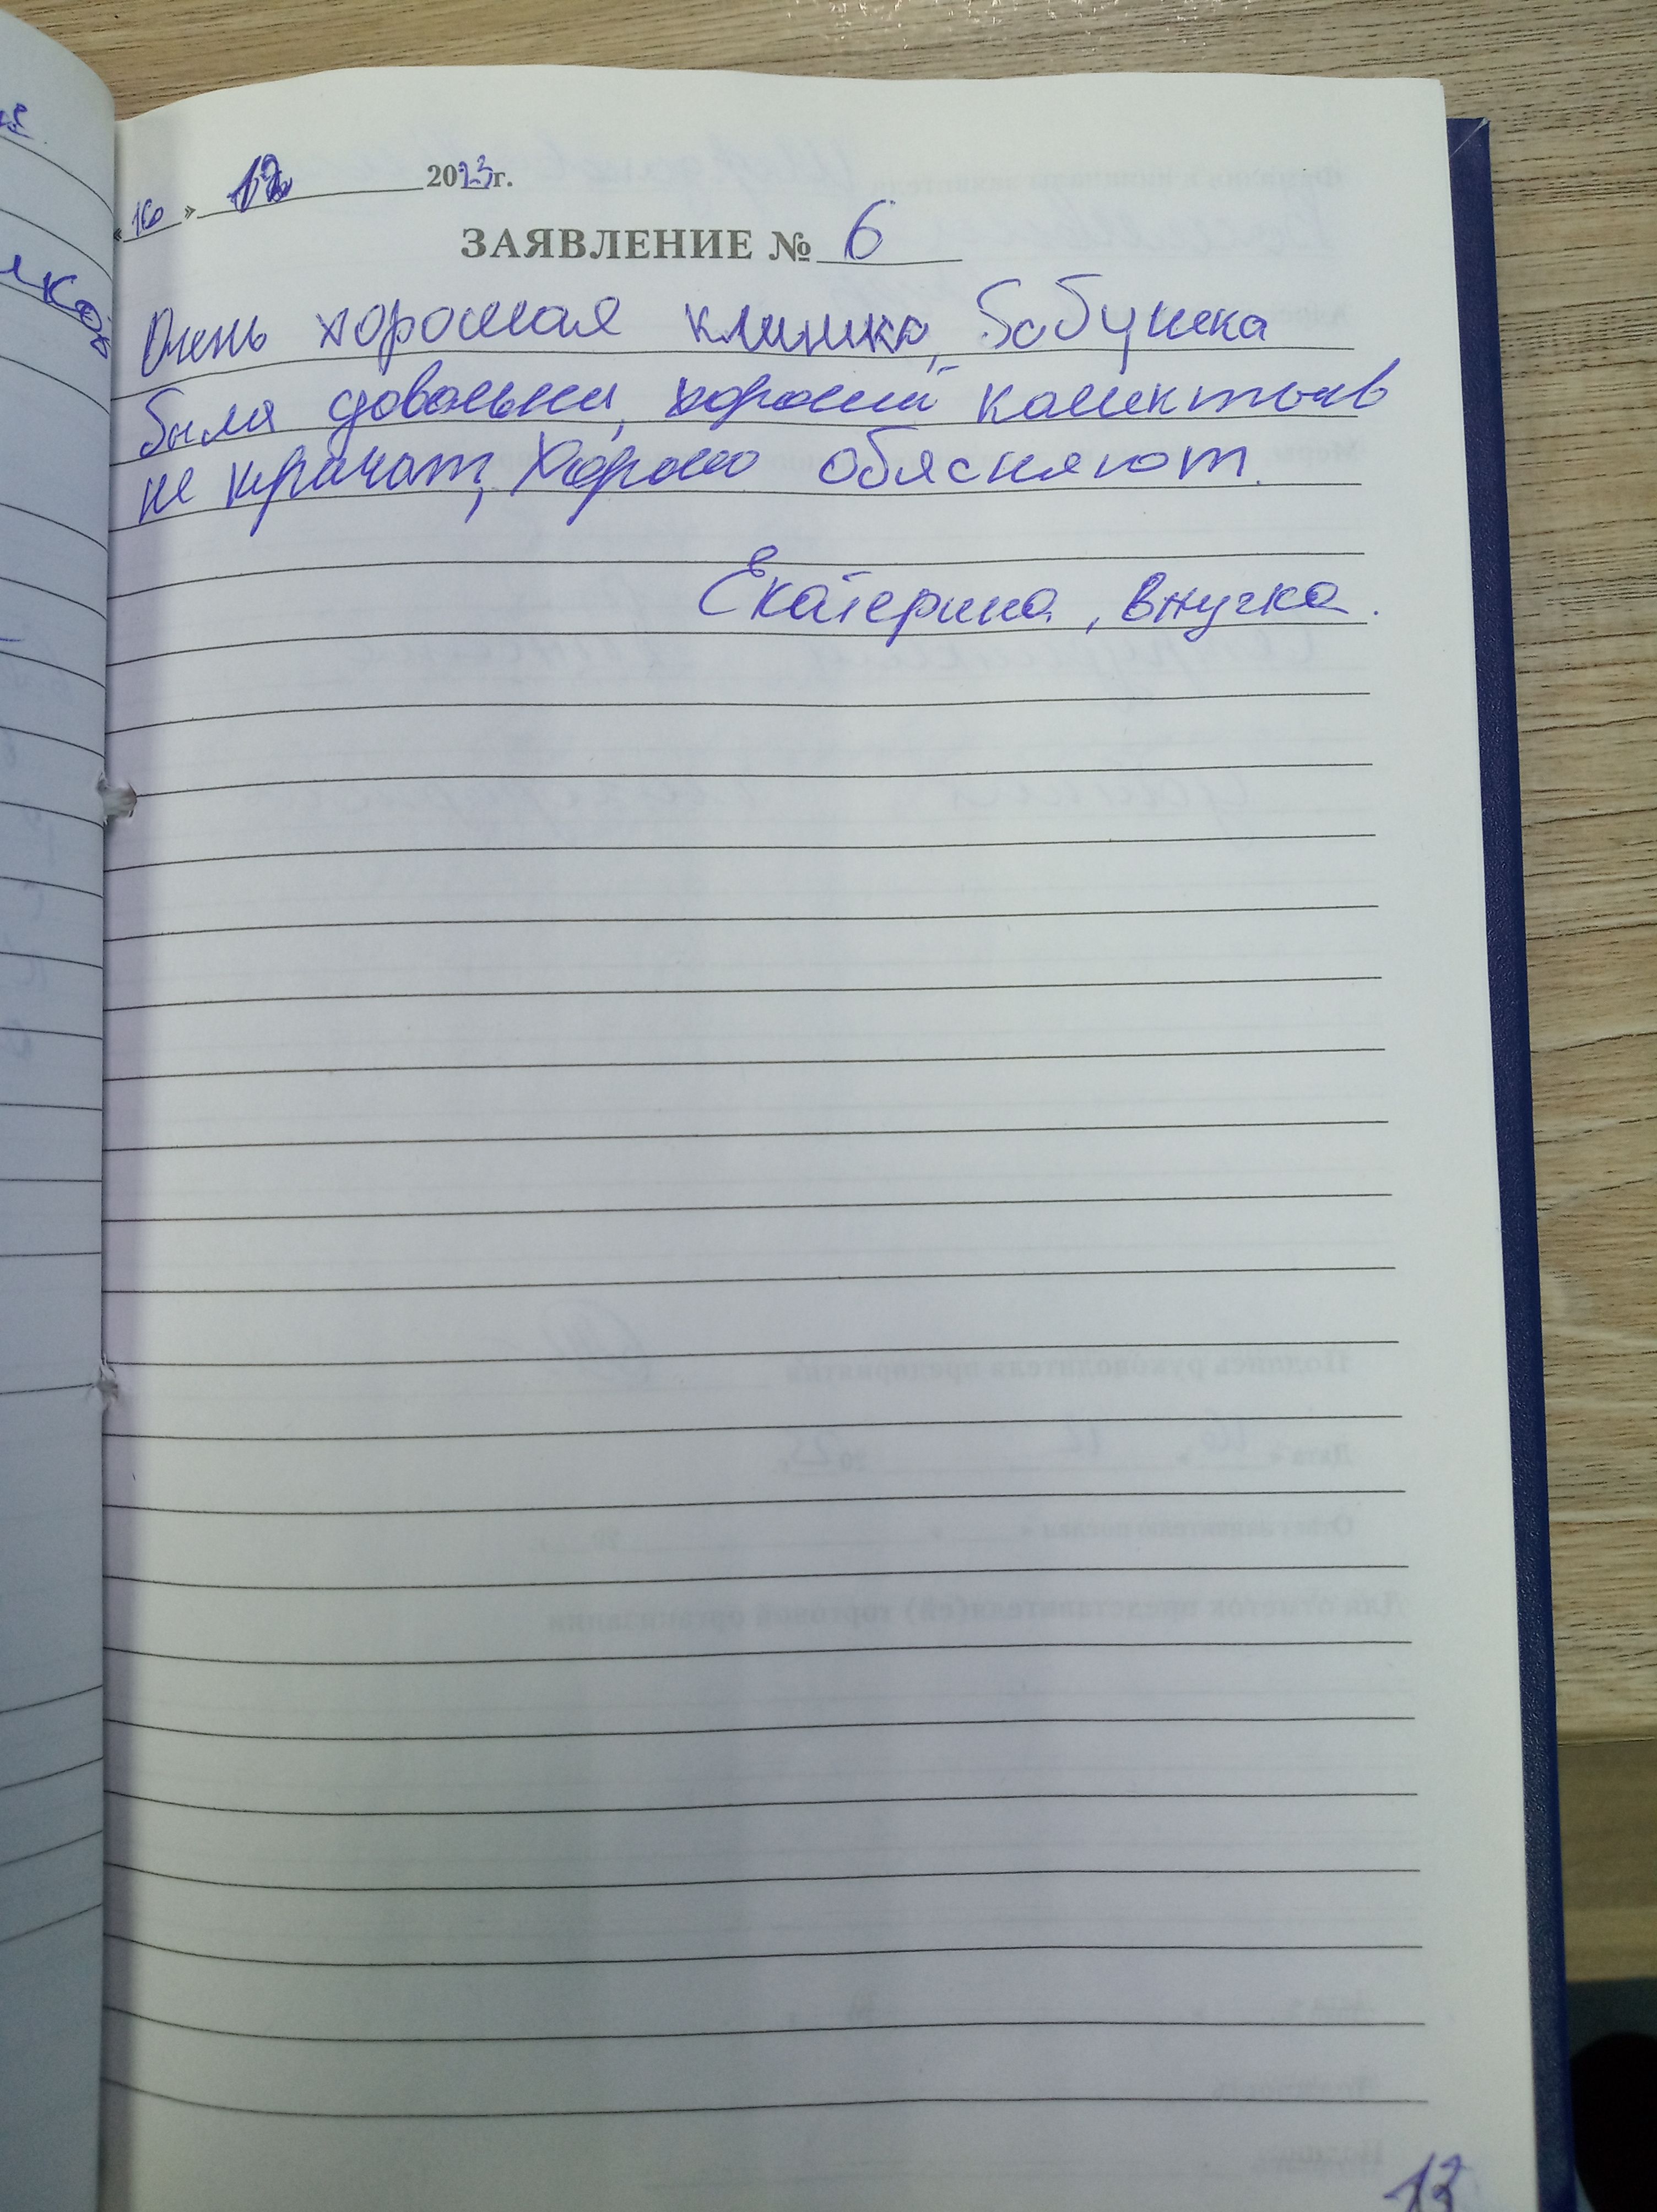 «16» 12 2023г.
ЗАЯВЛЕНИЕ № 6
Очень хорошая клиника, бабушка
была довольна, хороший коллектив
не кричат, хорошо обясняют.
Екатерина, внучка.
13